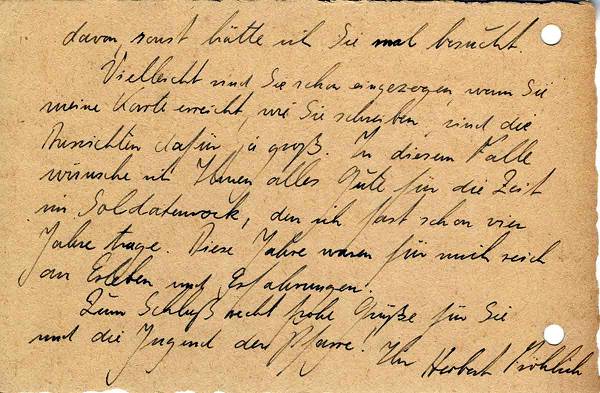 davon, sonst hätte ich Sie mal besucht.
Vielleicht sind Sie schon eingezogen, wenn Sie
meine Karte erreicht, wie Sie schreiben, sind die
Aussichten dafür ja groß. In diesem Falle
wünsche ich Ihnen alles Gute für die Zeit
im Soldatenrock, den ich fast schon vier
Jahre trage. Diese Jahre waren für mich reich
an Erleben und Erfahrungen!
Zum Schluß recht frohe Grüße für Sie
und die Jugend der Pfarre! Ihr Herbert Fröhlich